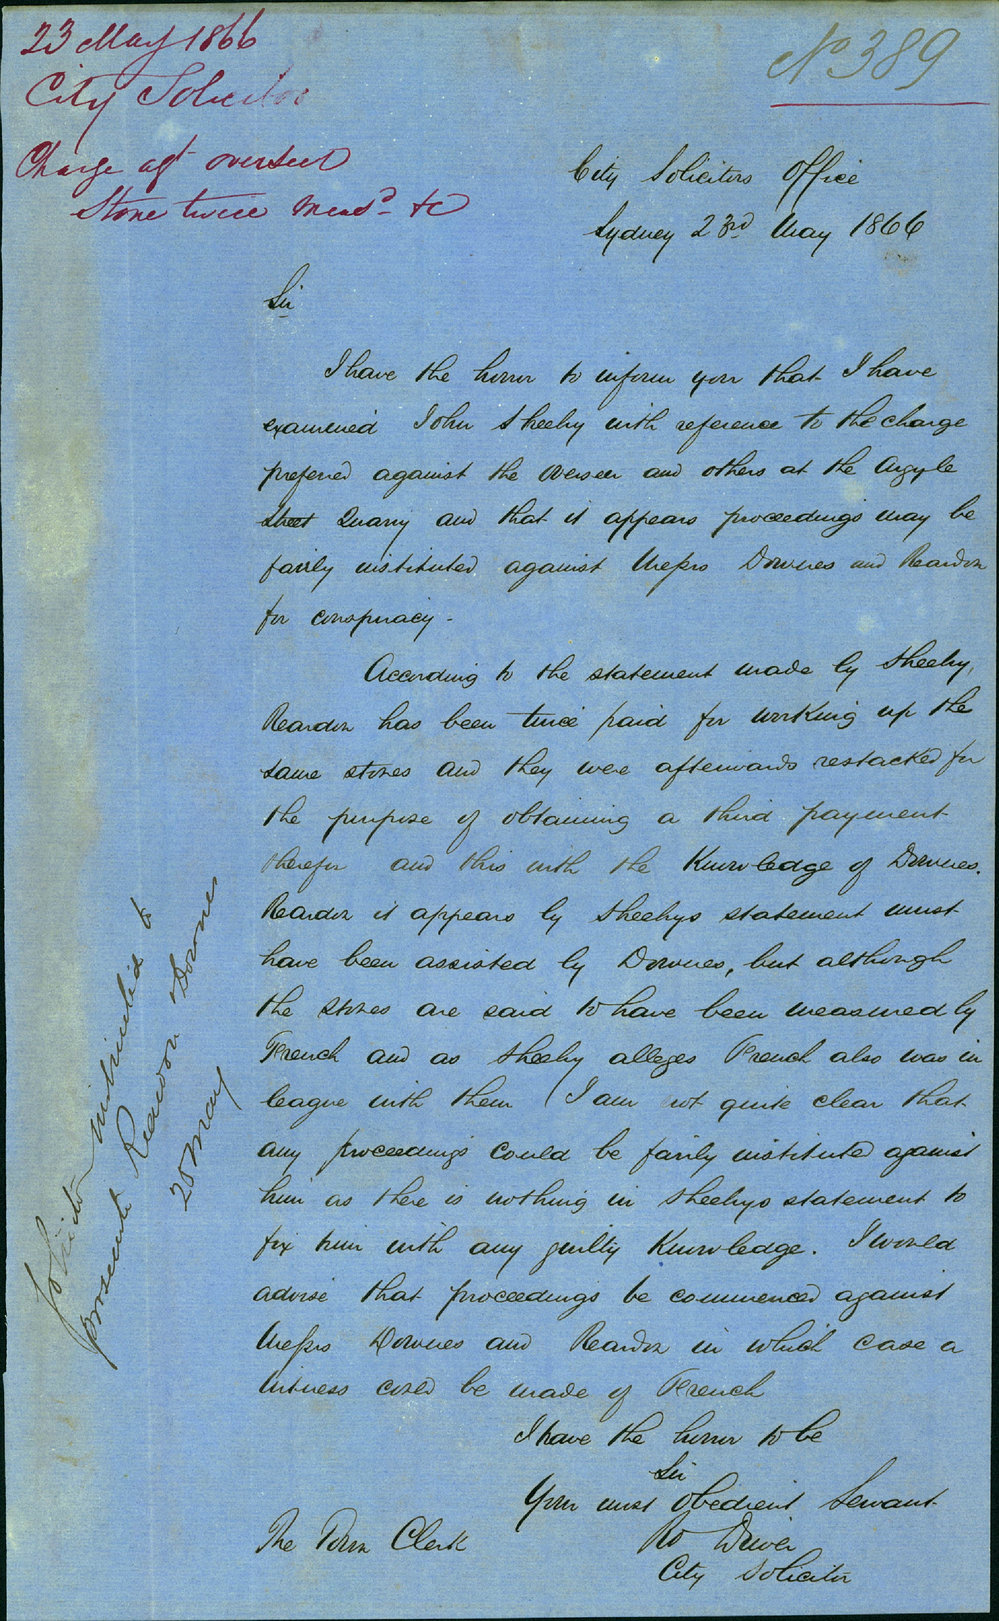 23 May 1866
City Solicitor
Charge agt overseer
Stone twice Measd &c
No 389
City Solicitors Office
Sydney 23rd May 1866
Sir
I have the honor to inform you that I have
examined John Sheehy with reference to the charge
preferred against the Overseer and others at the Argyle
Street Quarry and that it appears proceedings may be
fairly instituted against Messrs Downes and Reardon
for conspiracy -
According to the statement made by Sheehy,
Reardon has been twice paid for working up the
same stones and they were afterwards restacked for
the purpose of obtaining a third payment
therefor and this with the Knowledge of Downes.
Reardon it appears by Sheehys statement must
have been assisted by Downes, but although
the stones are said to have been measured by
French and as Sheehy alleges French also was in
league with them I am not quite clear that
any proceedings could be fairly instituted against
him as there is nothing in Sheehys statement to
fix him with any guilty Knowledge. I would
advise that proceedings be commenced against
Messrs Downes and Reardon in which case a
witness could be made of French
I have the honor to be
Sir
Your most Obedient Servant
Ro Driver
City Solicitor
The Town Clerk
Solicitor instructed to
prosecute Reardon & Downes
28 May